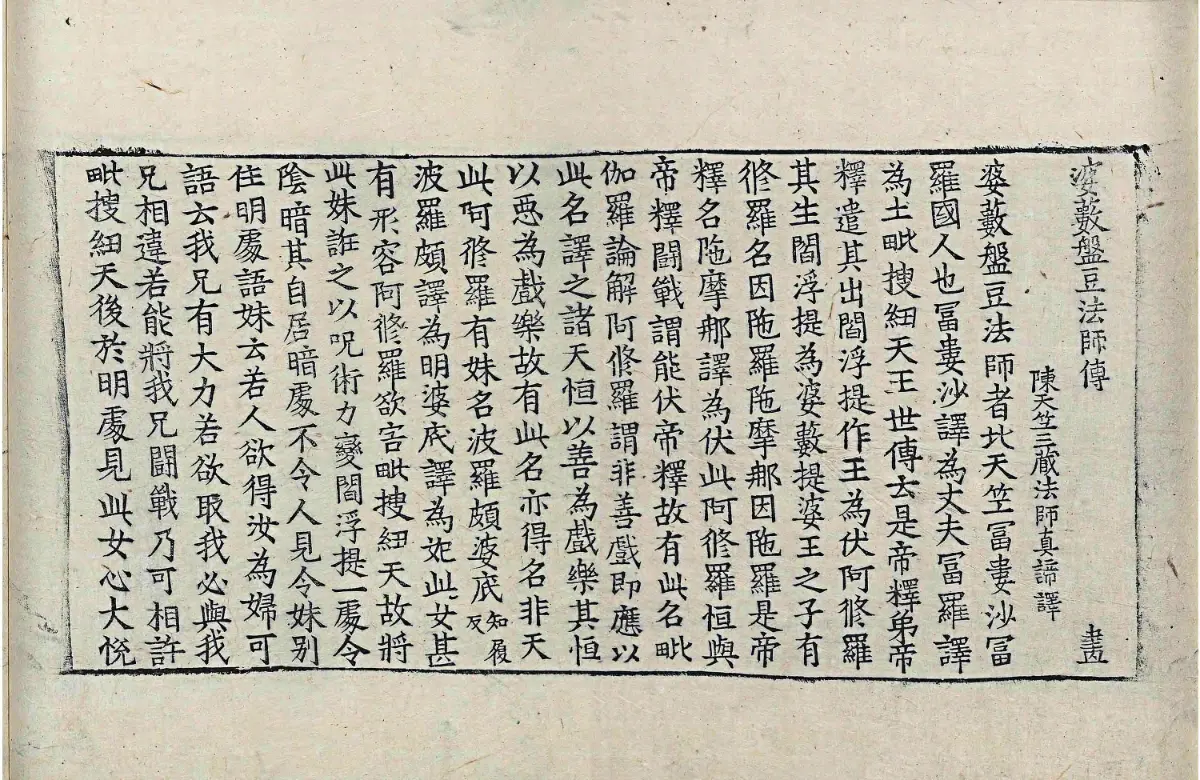 婆藪盤豆法師傳 畫
陳天竺三藏法師真諦譯
婆藪盤豆法師者北天竺冨婁沙冨
羅國人也冨婁沙譯為丈夫冨羅譯
為土毗搜紐天王世傳云是帝釋弟帝
釋遣其出閻浮提作王為伏阿修羅
其生閻浮提為婆藪提婆王之子有
修羅名因陁羅陁摩那因陁羅是帝
釋名陁摩那譯為伏此阿修羅恒與
帝釋鬪戰謂能伏帝釋故有此名毗
伽羅論解阿修羅謂非善戲即應以
此名譯之諸天恒以善為戲樂其恒
以惡為戲樂故有此名亦得名非天
此阿修羅有妹名波羅頗婆底知履反
波羅頗譯為明婆底譯為妃此女甚
有形容阿修羅欲害毗搜紐天故將
此妹誑之以呪術力變閻浮提一處令
陰暗其自居暗處不令人見令妹别
住明處語妹云若人欲得汝為婦可
語云我兄有大力若欲取我必與我
兄相違若能將我兄鬪戰乃可相許
毗搜紐天後於明處見此女心大悅